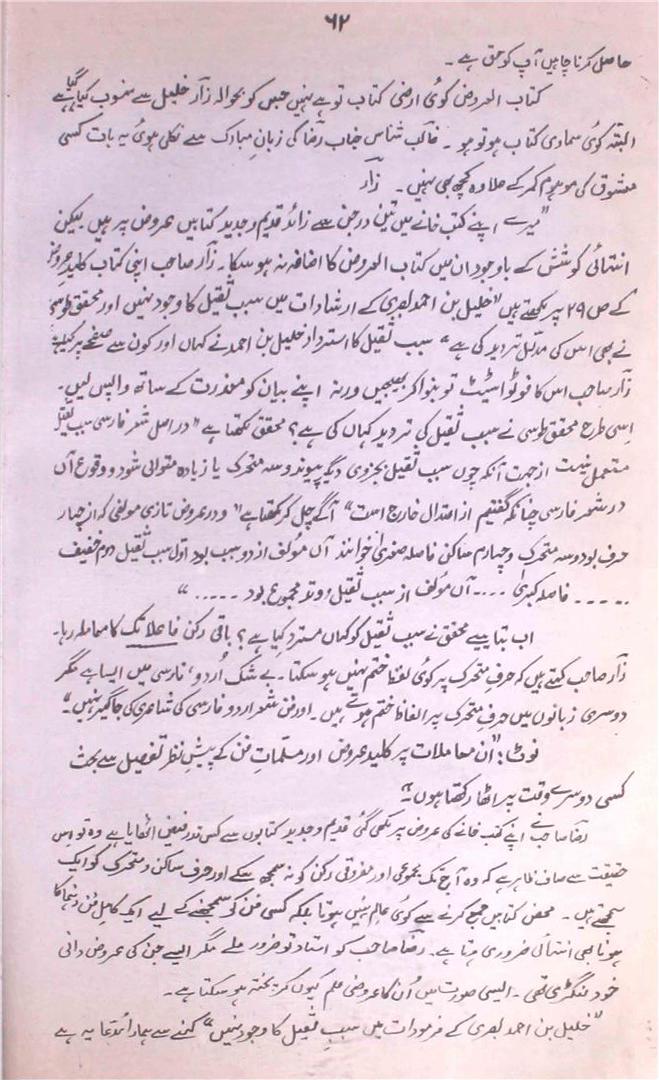 ۶۲
حاصل کرنا چاہیں آپ کو حق ہے ۔
کتاب العروض کوئی ارضی کتاب تو ہے نہیں جس کو بحوالہ زآر خلیل سے منسوب کیا گیا ہے
البتہ کوئی سماوی کتاب ہو تو ہو ۔ غالب شناس جناب رضا کی زبانِ مبارک سے نکلی ہوئی یہ بات کسی
معشوق کی موہوم کمر کے علاوہ کچھ بھی نہیں ۔ زآر
"میرے اپنے کتب خانے میں تین درجن سے زائد قدیم و جدید کتابیں عروض پر ہیں لیکن
انتہائی کوشش کے باوجود ان میں کتاب العروض کا اضافہ نہ ہو سکا ۔ زآر صاحب اپنی کتاب کلیدِ عروض
کے ص ۲۹ پر لکھتے ہیں "خلیل بن احمد بصری کے ارشادات میں سبب ثقیل کا وجود نہیں اور محقق طوسی
نے بھی اس کی مدلّل تردید کی ہے" سبب ثقیل کا استرداد خلیل بن احمد نے کہاں اور کون سے صفحے پر کیا ہے
زآر صاحب اس کا فوٹو اسٹیٹ تو بنوا کر بھیجیں ورنہ اپنے بیان کو معذرت کے ساتھ واپس لیں ۔
اسی طرح محقق طوسی نے سبب ثقیل کی تردید کہاں کی ہے؟ محقق لکھتا ہے "در اصل شعر فارسی سبب ثقیل
مستعمل نیست از جہت آنکہ چوں سبب ثقیل بجزوی دیگر پیوند و سہ متحرک یا زیادہ متوالی شود و وقوع آں
در شعر فارسی چنانکہ گفتیم از اعتدال خارج است" آگے چل کر لکھتا ہے "و در عروض تازی مولفی کہ از چہار
حرف بود و سہ متحرک و چہارم ساکن فاصلہ صغریٰ خوانند آں مؤلف از دو سبب بود اوّل سبب ثقیل دوم خفیف
۔۔۔۔۔ فاصلہ کبریٰ ۔۔۔۔ آں مؤلف از سبب ثقیل و وتد مجموع بود ۔۔۔۔۔ "
اب بتائیے محقق نے سبب ثقیل کو کہاں مسترد کیا ہے؟ باقی رکن فاعلاتک کا معاملہ رہا ۔
زآر صاحب کہتے ہیں کہ حرفِ متحرک پر کوئی لفظ ختم نہیں ہو سکتا ۔ بے شک اُردو، فارسی میں ایسا ہے مگر
دوسری زبانوں میں حرفِ متحرک پر الفاظ ختم ہوتے ہیں ۔ اور فن شعر اردو فارسی کی شاعری کی جاگیر نہیں ۔"
نوٹ : "ان معاملات پر کلیدِ عروض اور مسلّماتِ فن کے پیشِ نظر تفصیل سے بحث
کسی دوسرے وقت پر اٹھا رکھتا ہوں ۔"
رضا صاحب نے اپنے کتب خانے کی عروض پر لکھی گئی قدیم و جدید کتابوں سے کس قدر فیض اٹھایا ہے وہ تو اس
حقیقت سے صاف ظاہر ہے کہ وہ آج تک مجموعی اور مفروقی رکن کو نہ سمجھ سکے اور حرف ساکن و متحرک کو ایک
سمجھتے ہیں ۔ محض کتابیں جمع کرنے سے کوئی عالم نہیں ہوتا بلکہ کسی فن کو سمجھنے کے لیے ایک کامل فن رہنما کا
ہونا بھی انتہائی ضروری ہوتا ہے ۔ رضا صاحب کو استاد تو ضرور ملے مگر ایسے جن کی عروض دانی
خود لنگڑی تھی ۔ ایسی صورت میں اُن کا عروضی علم کیوں کر پختہ ہو سکتا ہے ۔
"خلیل بن احمد بصری کے فرمودات میں سببِ ثقیل کا وجود نہیں" کہنے سے ہمارا مدّعا یہ ہے